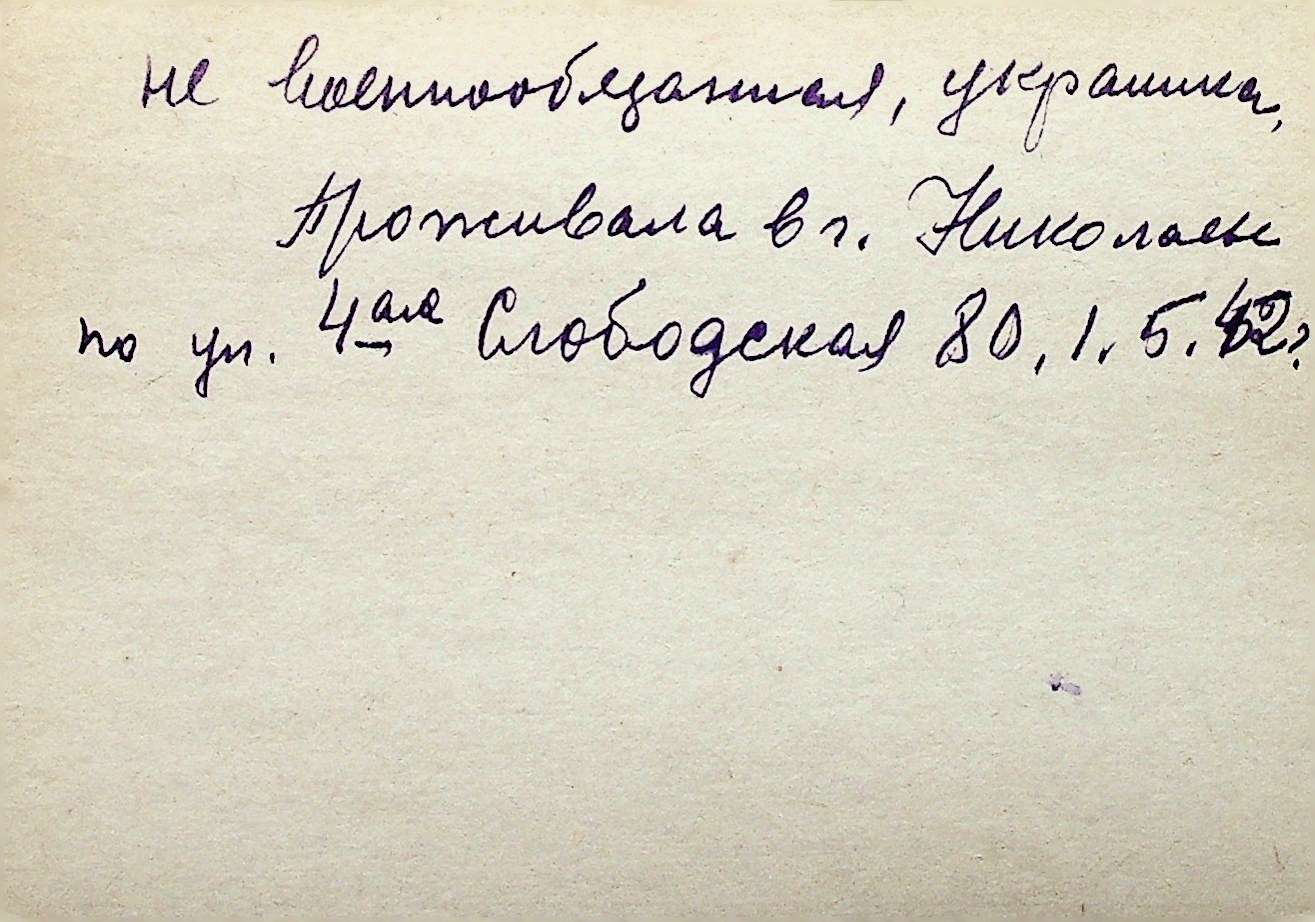 не военнообязанная, украинка,
Проживала в г. Николаеве
по ул. 4ая Слободская 80, 1.5.42г.